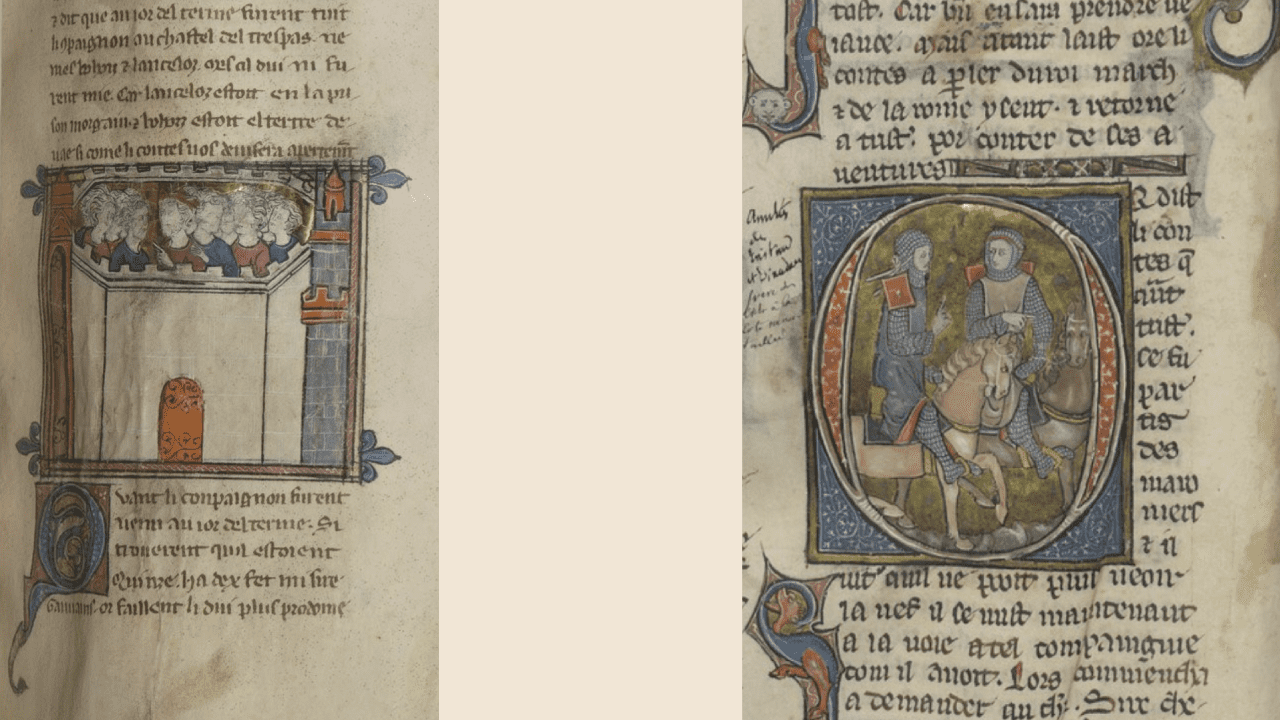 ⁊ dit que au ior del terme furent tuit
li conpaignon au chastel del trespas. ne
mes lancelot. dui ni fu
rent mie. Car lancelot estoit en la pri
son morgain. ⁊ estoit el tertre de
uee si come li contes uos deuisera
Quant li conpaignon furent
uenu au ior del terme. Si
trouerent quil estoient
Quinze. ha dex fet mi sire
Gauuains. or faillent li dui plus prodome
tost. Car bñ en saui prendre ue
iance. Mais atant laist ore li
contes a ꝑler du roi march
⁊ de la roine yseut. ⁊ retorne
a trist'. por conter de ses a
uentures
OR dist
li con
tes q̃
q̃nt
trist'.
se fu
par
tis
des
mari
niers
⁊ il
uit quil ne pooit plus ueoir
la nef il se mist maintenant
a la uoie a tel compaingnie
com il auoit. Lors commencha
a demander au ch'r. Sire che